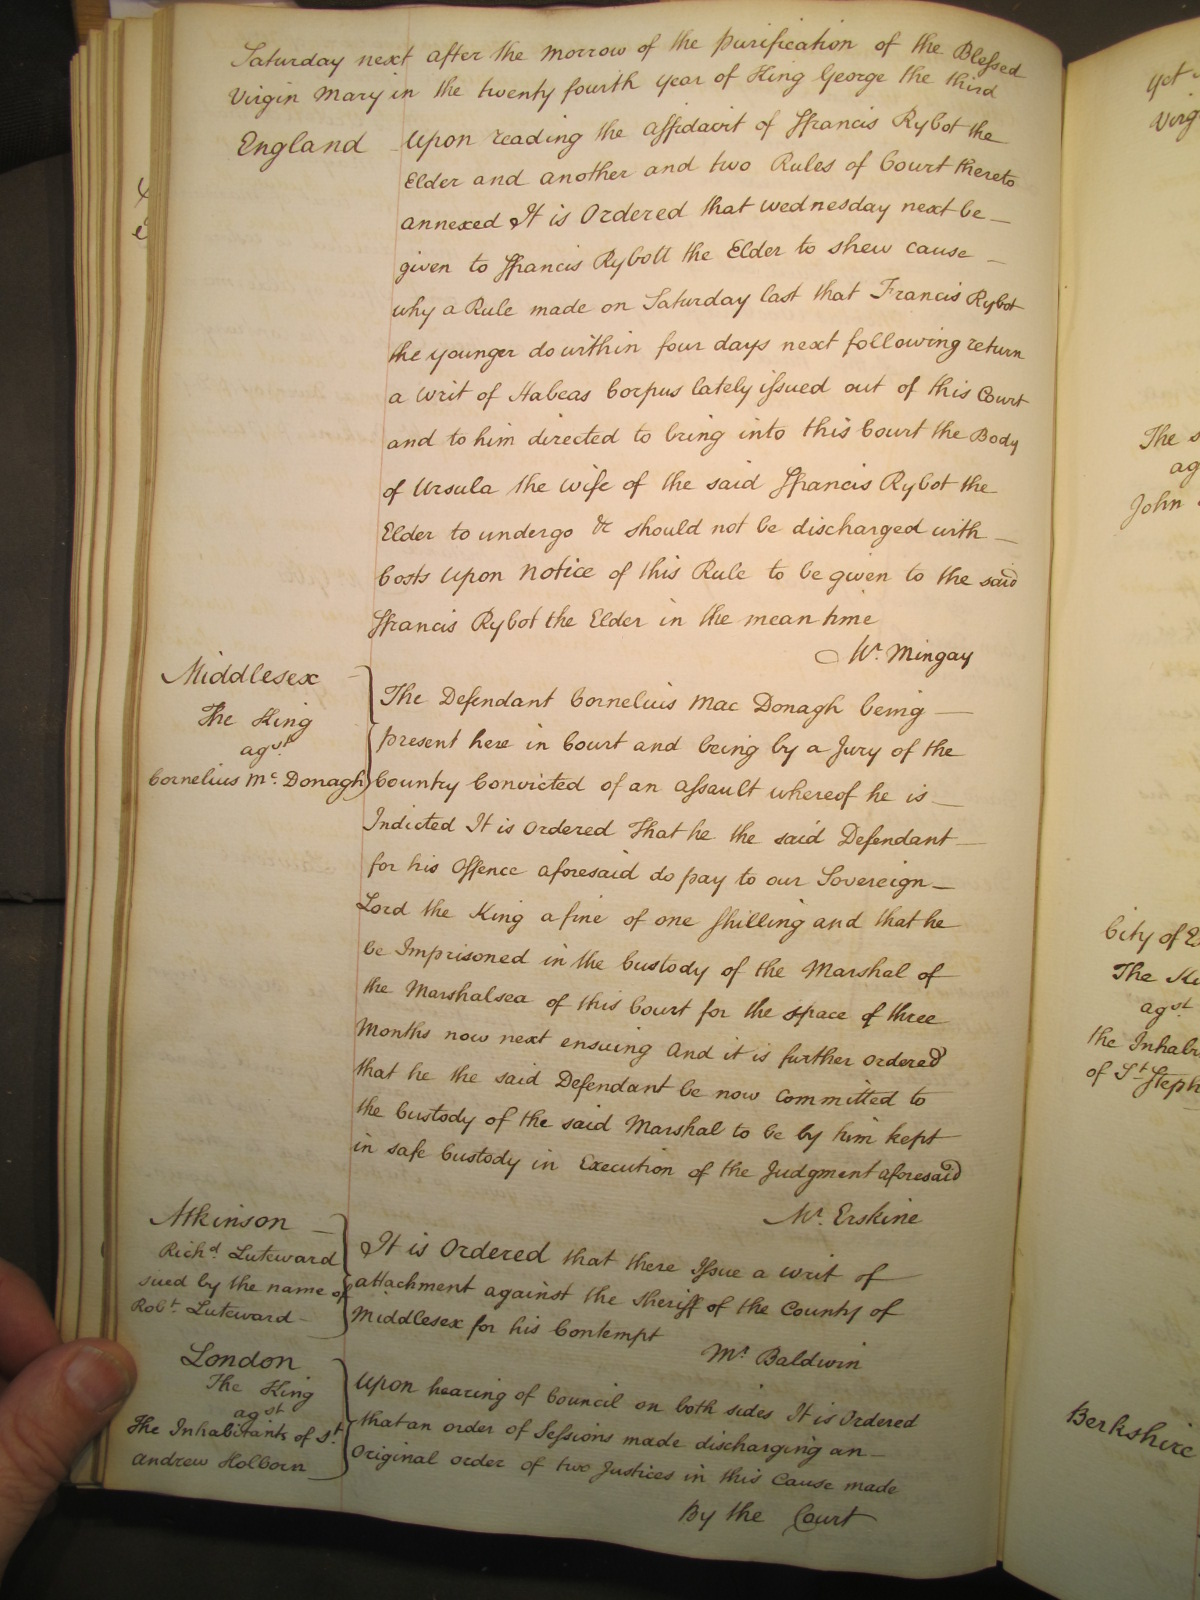 Saturday next after the Morrow of the Purification of the Blessed
Virgin Mary in the twenty fourth year of King George the third
England Upon reading the affidavit of Ffrancis Rybot the
Elder and another and two Rules of Court thereto
annexed It is Ordered that wednesday next be
given to Ffrancis Rybott the Elder to shew cause
why a Rule made on Saturday last that Francis Rybot
the younger do within four days next following return
a writ of Habeas Corpus lately issued out of this Court
and to him directed to bring into this Court the Body
of Ursula the wife of the said Ffrancis Rybot the
Elder to undergo &c should not be discharged with
Costs Upon Notice of this Rule to be given to the said
Ffrancis Rybot the Elder in the mean time
Mr. Mingay
Middlesex
The King
agst
Cornelius Mc. Donagh
The Defendant Cornelius Mac Donagh being
present here in Court and being by a Jury of the
Country Convicted of an assault whereof he is
Indicted It is Ordered That he the said Defendant
for his Offence aforesaid do pay to our Sovereign
Lord the King a fine of one shilling and that he
be Imprisoned in the Custody of the Marshal of
the Marshalsea of this Court for the space of three
Months now next ensuing And it is further Ordered
that he the said Defendant be now Committed to
the Custody of the said Marshal to be by him kept
in safe Custody in Execution of the Judgment aforesaid
Mr. Erskine
Atkinson
Richd. Luteward
sued by the name of
Robt. Luteward
It is Ordered that there Issue a writ of
attachment against the Sheriff of the County of
Middlesex for his Contempt
Mr. Baldwin
London
The King
agst
The Inhabitants of St.
Andrew Holborn
Upon hearing of Council on both sides It is Ordered
that an order of Sessions made discharging an
Original order of two Justices in this Cause made
By the Court
The
ag
John
City of
The
agst
the
of St.
Berkshire